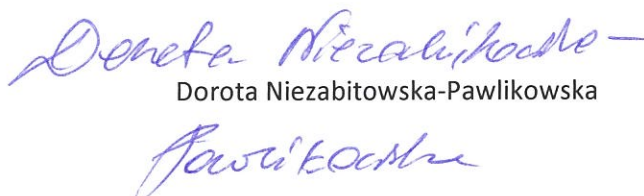 Dorota Niezabitowska-
Dorota Niezabitowska-Pawlikowska
Pawlikowska